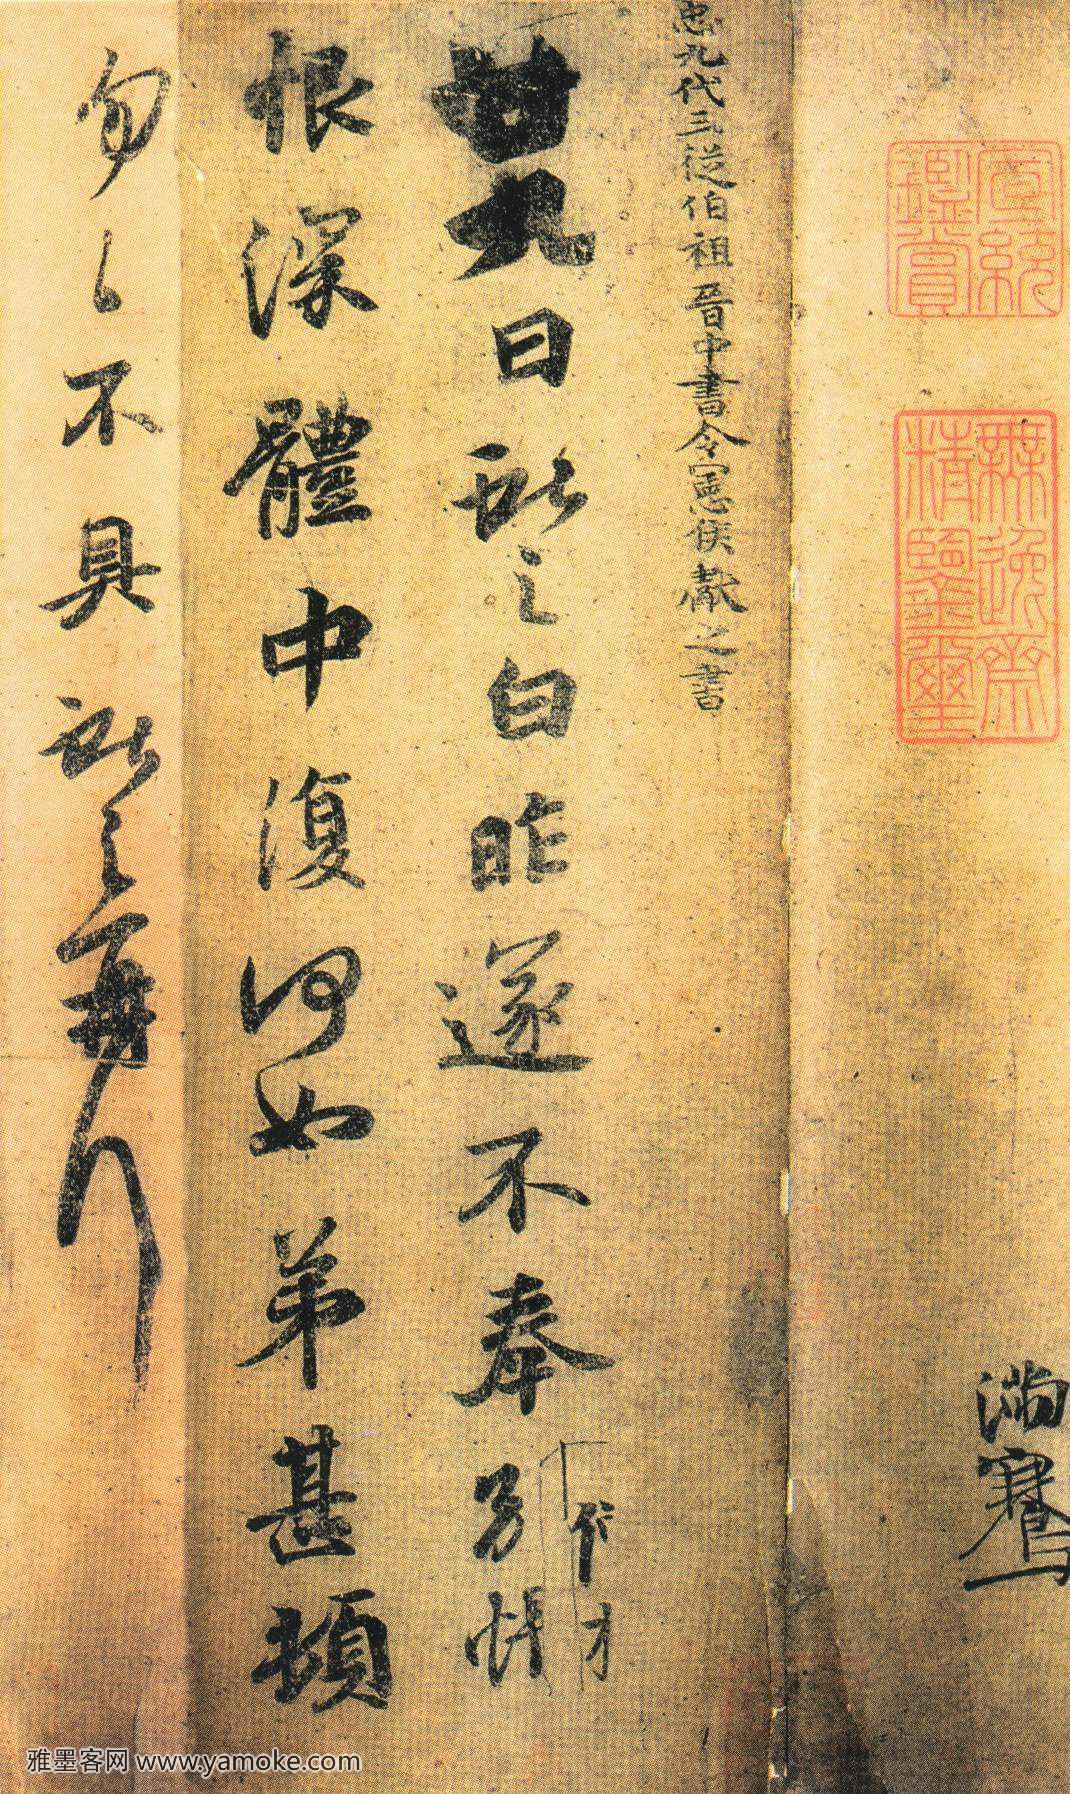 宣統鑒賞
無逸齋精鑒璽
滿騫
九代三從伯祖晉中書令憲侯獻之書
廿九日獻之白昨遂不奉別悵
恨深體中復何如弟甚頓
勿〻不具獻之再拜
雅墨客网 www.yamoke.com